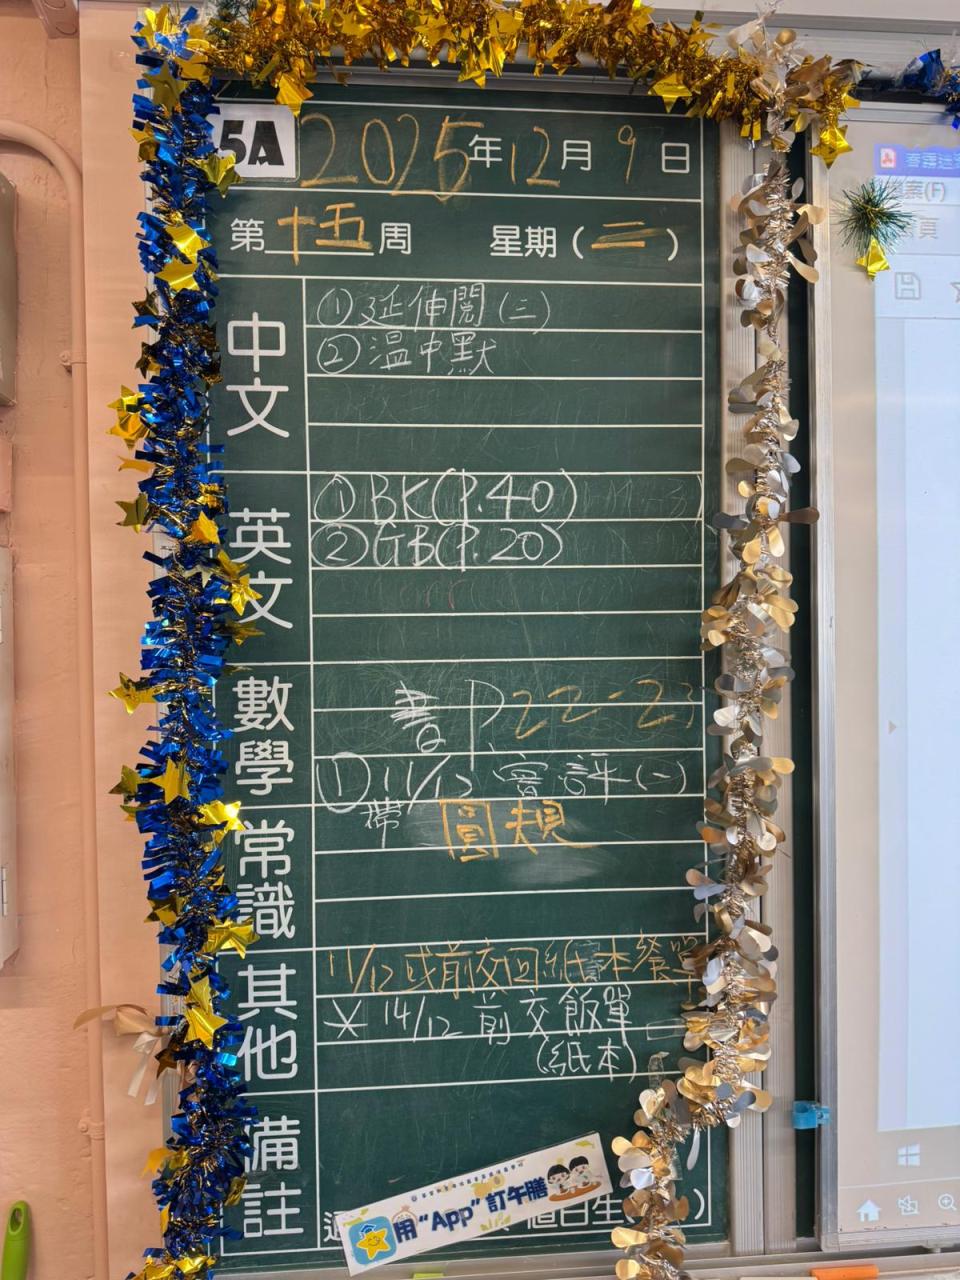 5A 2025年12月9日
第十五周 星期(二)
中文
①延伸閱(三)
②温中默
英文
①BK(P.40)
②GB(P.20)
數學
書P22-23
①11/12 實評(一)
常識
帶 圓規
其他
11/12或前交回紙本餐單
* 14/12 前交飯單
(紙本)
備註
用“App”訂午膳
值日生( )
檔案(F)